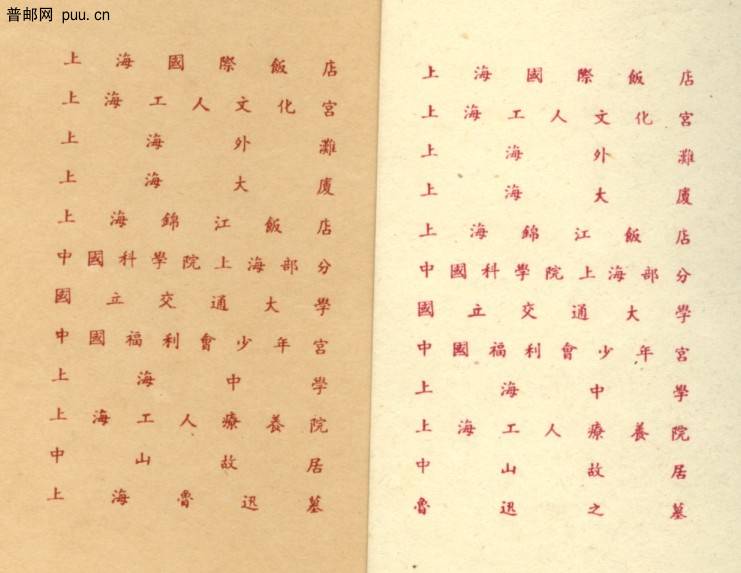 普邮网 puu.cn
上海國際飯店
上海工人文化宮
上海外灘
上海大廈
上海錦江飯店
中國科學院上海部分
國立交通大學
中國福利會少年宮
上海中學
上海工人療養院
中山故居
上海魯迅墓
上海國際飯店
上海工人文化宮
上海外灘
上海大廈
上海錦江飯店
中國科學院上海部分
國立交通大學
中國福利會少年宮
上海中學
上海工人療養院
中山故居
魯迅之墓